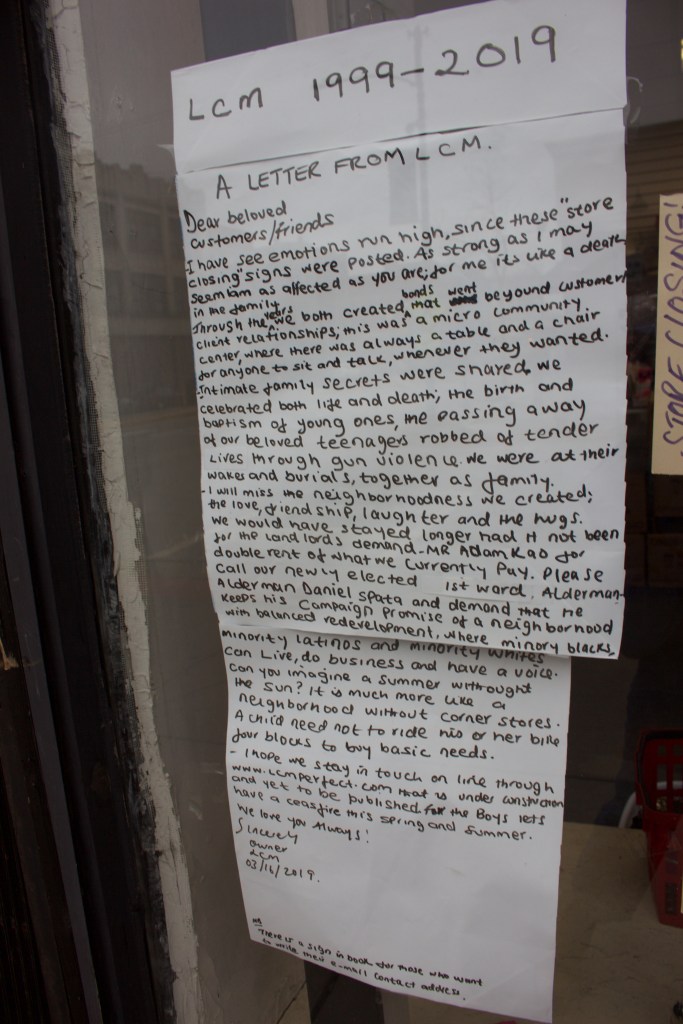 LCM 1999-2019
A LETTER FROM LCM.
Dear beloved
customers/friends
-I have see emotions run high, since these "store
closing" signs were posted. As strong as I may
seem I am as affected as you are; for me its like a death
in the family.
Through the years we both created bonds that went beyound customer/
client relationships; this was a micro community
center, where there was always a table and a chair
for anyone to sit and talk, whenever they wanted.
Intimate family secrets were shared, we
celebrated both life and death; the birth and
baptism of young ones, the passing away
of our beloved teenagers robbed of tender
lives through gun violence. we were at their
wakes and burials, together as family.
-I will miss the neighborhoodness we created;
the love, friendship, laughter and the hugs.
We would have stayed longer had it not been
for the landlords demand-MR Adam Kao for
double rent of what we currently Pay. Please
call our newly elected 1st ward. Alderman-
Alderman Daniel Spata and demand that he
keeps his Campaign promise of a neighborhood
with balanced redevelopment, where minory blacks,
minority latinos and minority whites
can Live, do business and have a voice.
can you imagine a summer withrought
the sun? It is much more like a
neighborhood without corner stores.
A child need not to ride his or her bike
four blocks to buy basic needs.
- I hope we stay in touch on line through
www.lcmperfect.com that is under construction
and yet to be published for the Boys lets
have a ceasfire this spring and summer.
We love you Always!
Sincerely
owner
LCM
03/16/2019.
There is a sign in book for those who want
to write their e-mail contact address.
STORE CLOSING!